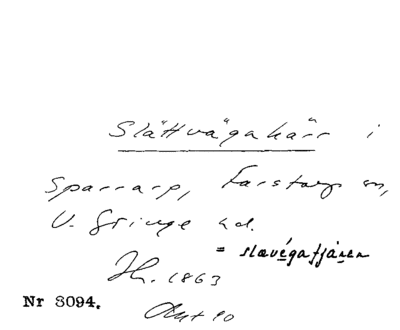 Slättvägakärr i
Sparrarp, Farstorp sn,
V. Göinge hd.
= slavégatjáren
1863
Nr 3094.